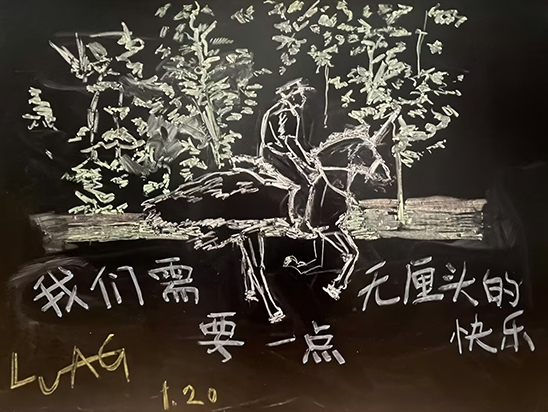 我们需
要一点
无厘头的
快乐
LUAG
1.20